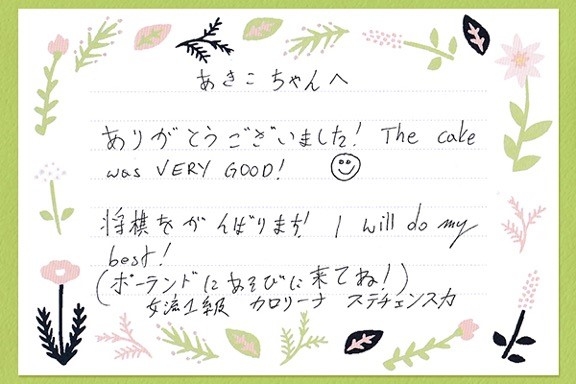 あきこちゃんへ
ありがとうございました! The cake
was VERY GOOD!
将棋をがんばります! I will do my
best!
(ポーランドにあそびに来てね!)
女流1級 カロリーナ ステチェンスカ